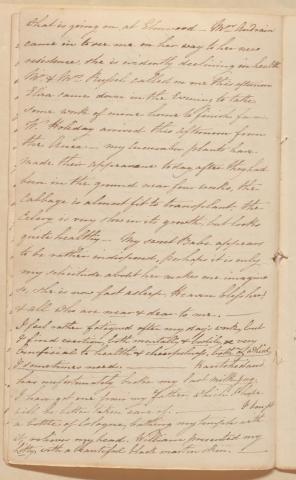 that is going on, at Elmwood — Mrs Andrain
came in to see me on her way to her new
residence, she is evidently declining in health
Mr & Mrs called on me this afternoon
Eliza came down in the Evening to take
some work of mine home to finish for me
W. Holiday arrived this afternoon from
the — my Cucumber plants have
made their appearance today, after they had
been in the ground near four weeks, the
Cabbage is almost fit to transplant, the
Celery is very slow in its growth, but looks
quite healthy — My sweet Babe appears
to be rather indisposed, perhaps it is only
my solicitude about her makes me imagine
so, she is now fast asleep, Heaven bless her,
& all who are near & dear to me —
I feel rather fatigued after my day's work, but
I find exertion, both mentally & bodily, is very
beneficial to health & cheerfulness, both of which
I sometimes need.
has unfortunately broke my last milk jug,
I have got one from my Father which I hope
will be better taken care of — I bought
a bottle of Cologne, bathing my temples with
it relieves my head. William presented my
Letty with a beautiful black skin —